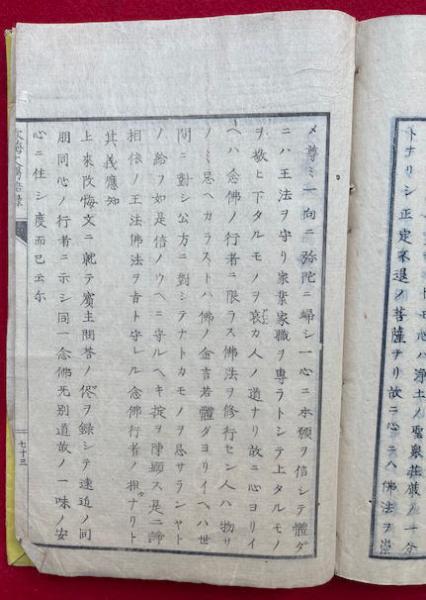 トナリシ正定不退ノ菩薩ナリ故ニ心ラヘ佛法ヲ崇
メ尊ミ一向ニ弥陀ニ歸シ一心ニ本願ヲ信シテ體ダ
ニハ王法ヲ守リ家業家職ヲ專ラトシテ上タルモノ
ヲ敬ヒ下タルモノヲ哀カ人ノ道ナリ故ニ心ヨリイ
ヘハ念佛ノ行者ニ限ラス佛法ヲ修行セン人ハ物サ
ノミ忌ヘガラストハ佛ノ金言若體ダヨリイヘハ世
間ニ對シ公方ニ對シテナトカモノヲ忌サランヤト
ノ給フ如是信ノウヘニ守ルヘキ掟ヲ陳顯ス是ニ諦
相依ノ王法佛法ヲ音ト守レル念佛行者ノ相ナリト
其義應知
上來改悔文ニ就テ賓主問荅ノ侭ヲ録シテ遠近ノ同
朋同心ノ行者ニ示シ同一念佛无別道故ノ一味ノ安
心ニ住シ度而已云尓
七十三